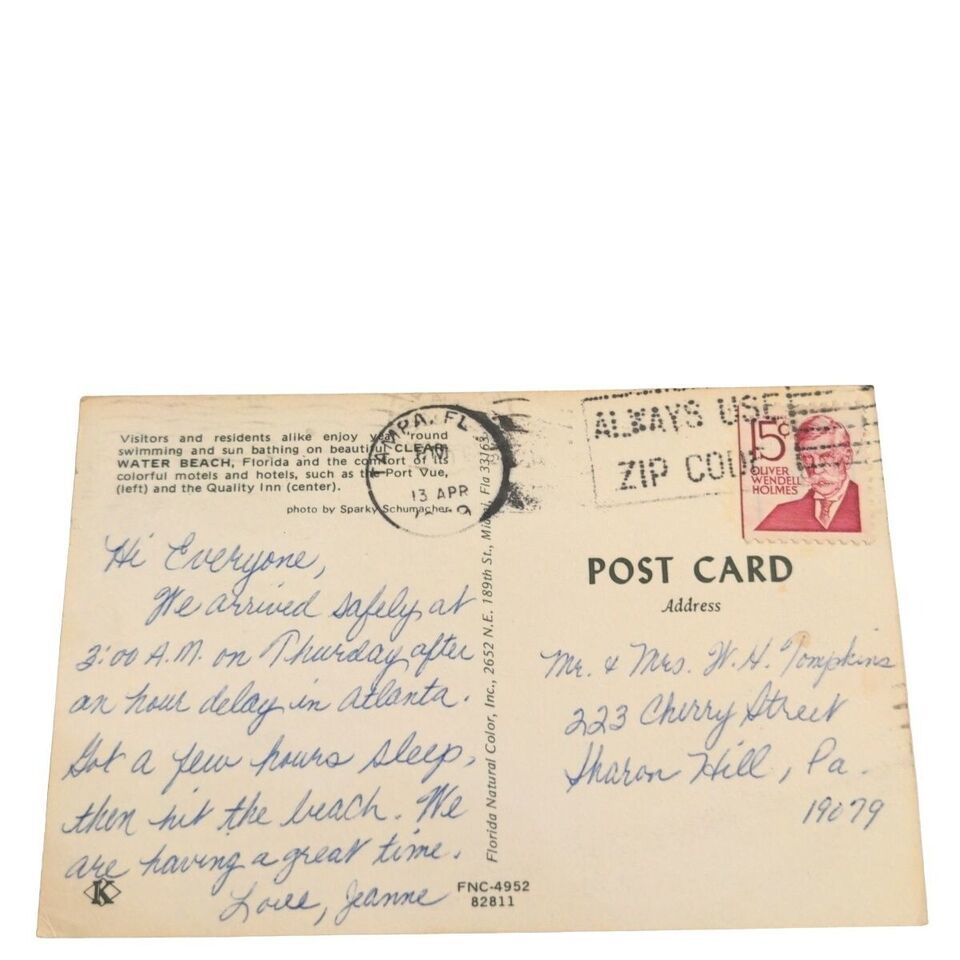 Visitors and residents alike enjoy year 'round
swimming and sun bathing on beautiful CLEAR-
WATER BEACH, Florida and the comfort of its
colorful motels and hotels, such as the Port Vue,
(left) and the Quality Inn (center).
photo by Sparky Schumacher
TAMPA, FL
13 APR
ALWAYS USE
ZIP CODE
15c
OLIVER
WENDELL
HOLMES
Hi Everyone,
We arrived safely at
3:00 A.M. on Thurday after
an hour delay in Atlanta.
Got a few hours sleep,
then hit the beach. We
are having a great time.
Love, Jeanne
K
Florida Natural Color, Inc., 2652 N.E. 189th St., Miami, Fla 33163
FNC-4952
82811
POST CARD
Address
Mr. & Mrs. W. H. Tompkins
223 Cherry Street
Sharon Hill, Pa.
19079